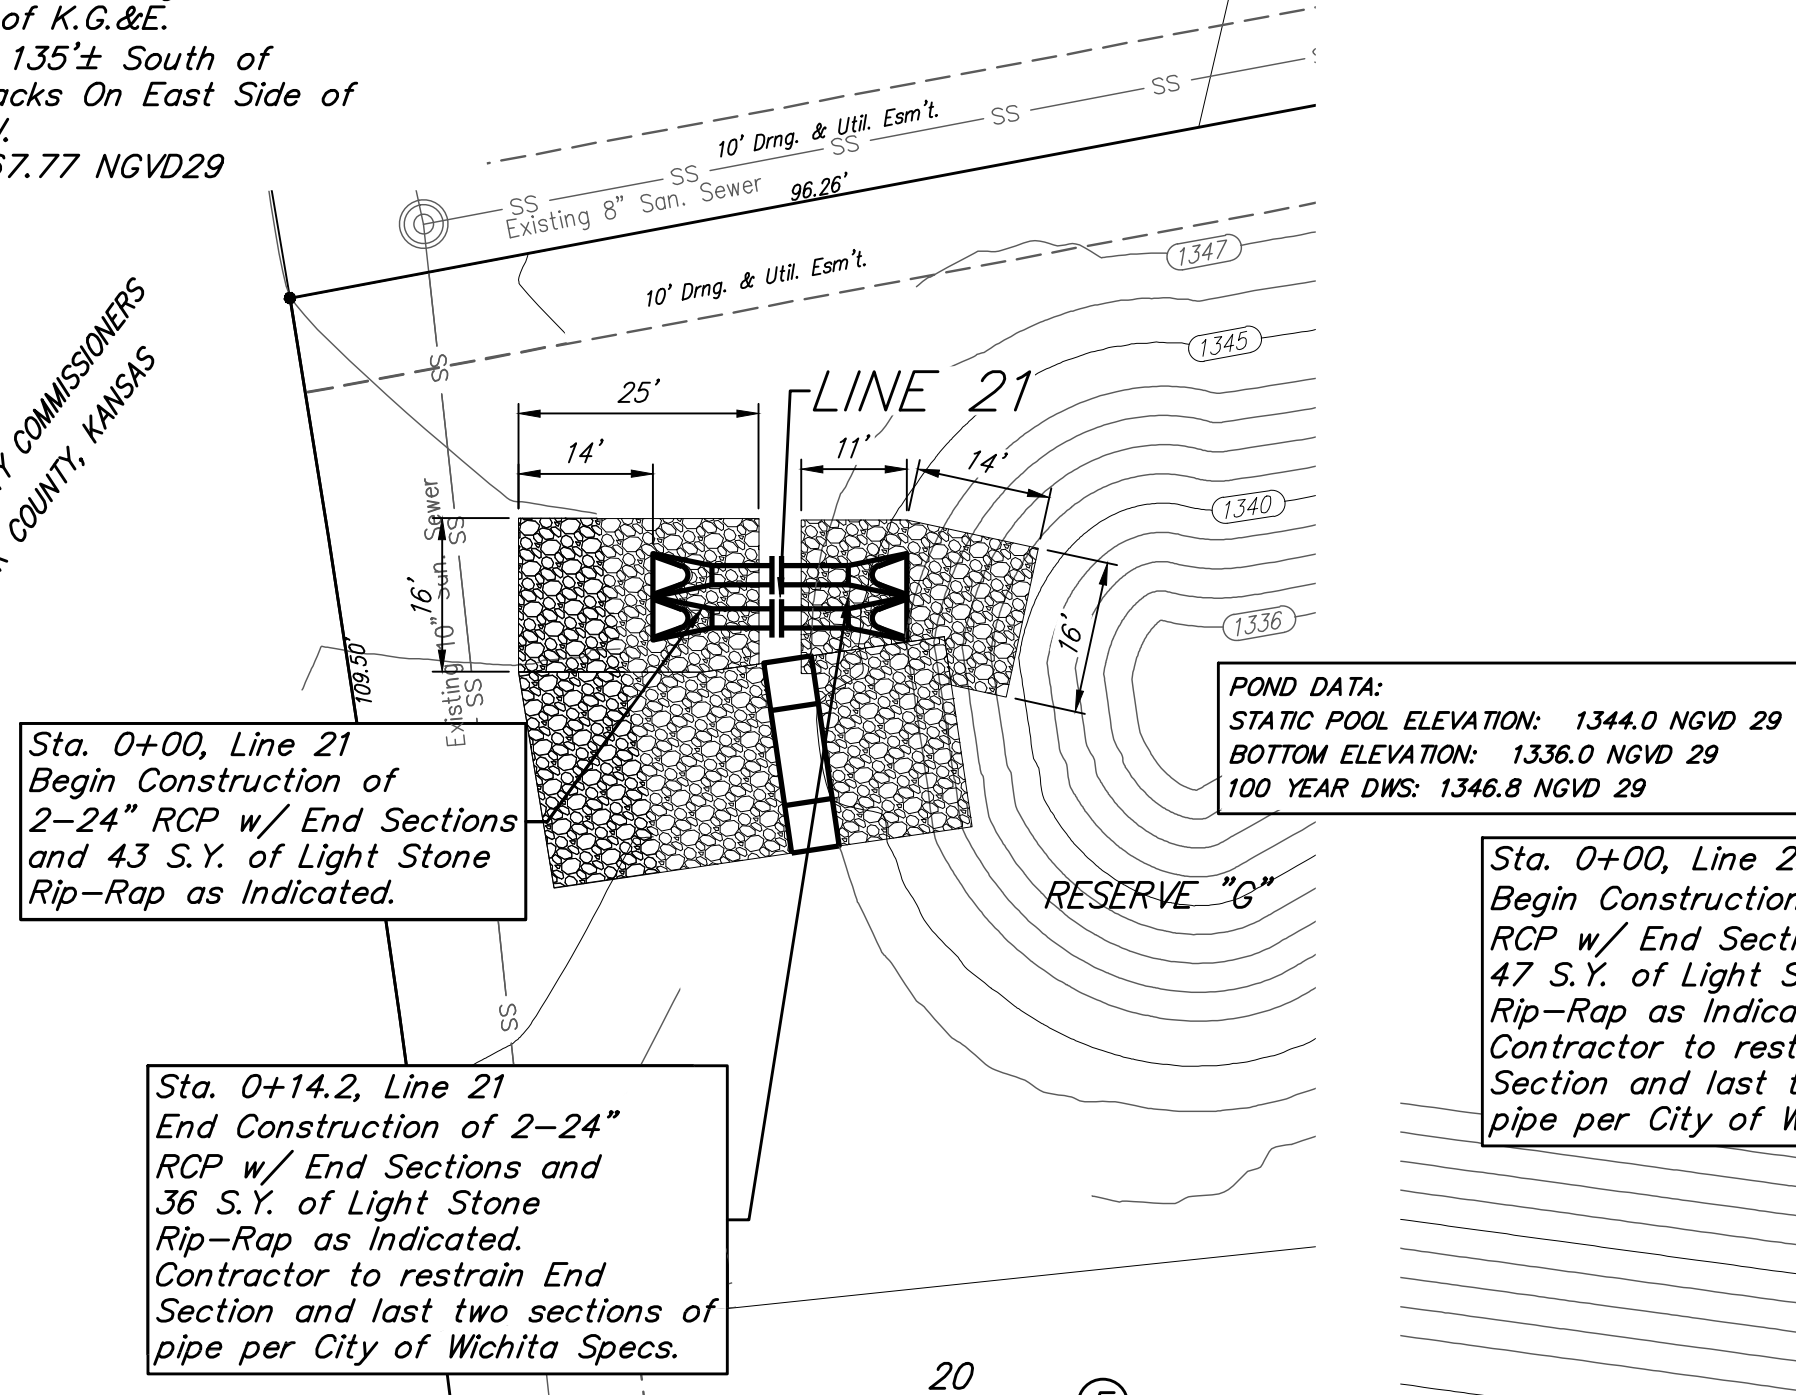 of K.G.&E.
135'± South of
acks On East Side of
67.77 NGVD29
COMMISSIONERS
COUNTY, KANSAS
10' Drng. & Util. Esm't.
SS
SS
SS
SS
SS
Existing 8" San. Sewer
96.26'
10' Drng. & Util. Esm't.
1347
1345
1340
1336
LINE 21
25'
14'
11'
14'
16'
16'
SS
SS
SS
SS
Existing 10" San. Sewer
109.50'
POND DATA:
STATIC POOL ELEVATION: 1344.0 NGVD 29
BOTTOM ELEVATION: 1336.0 NGVD 29
100 YEAR DWS: 1346.8 NGVD 29
Sta. 0+00, Line 21
Begin Construction of
2-24" RCP w/ End Sections
and 43 S.Y. of Light Stone
Rip-Rap as Indicated.
RESERVE "G"
Sta. 0+00, Line 2
Begin Construction
RCP w/ End Secti
47 S.Y. of Light S
Rip-Rap as Indica
Contractor to rest
Section and last t
pipe per City of W
Sta. 0+14.2, Line 21
End Construction of 2-24"
RCP w/ End Sections and
36 S.Y. of Light Stone
Rip-Rap as Indicated.
Contractor to restrain End
Section and last two sections of
pipe per City of Wichita Specs.
20